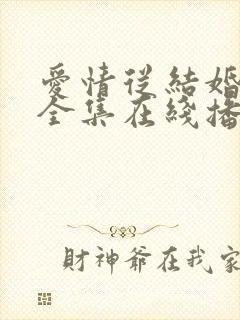 愛情從結婚
全集在綫播
財神爺在我家